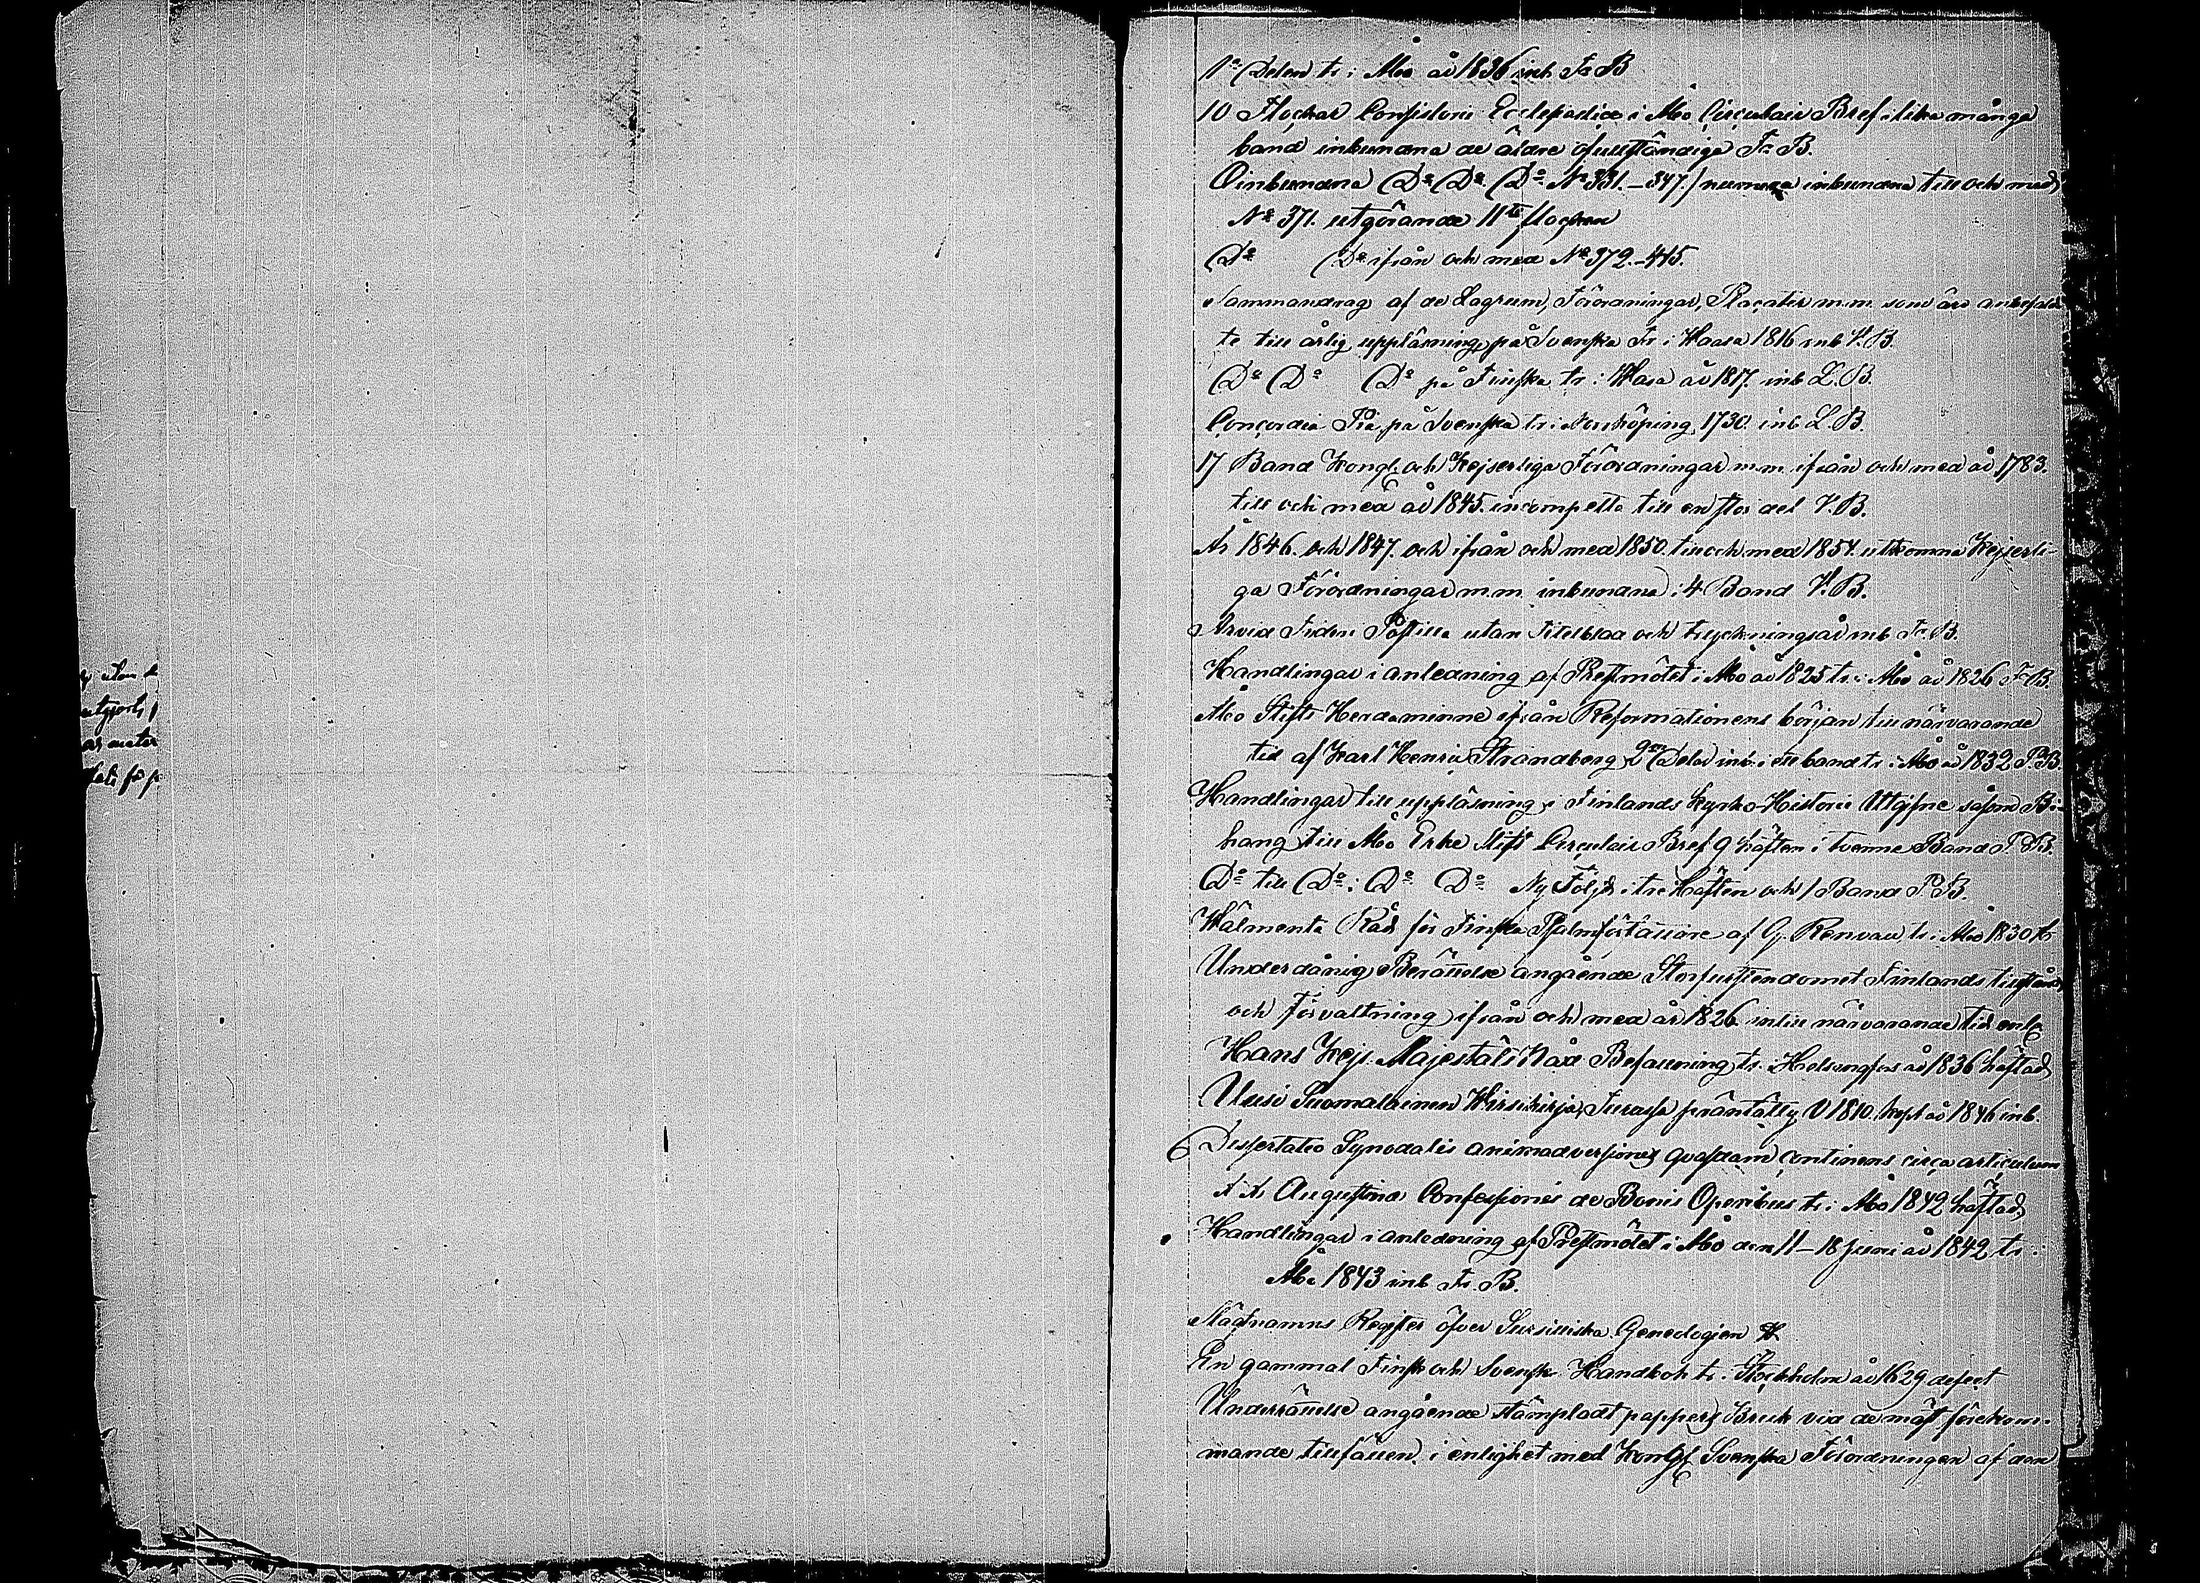 1a Delen tr. i Åbo år 1836 inb. Fr. B
10 Flockar Consistorii Ecclesiastici i Åbo Circulair Bref i lika många
band inbundna de äldre ofullständiga Fr. B.
Oinbundna Do Do Do No 331.–347. / numera inbundna till och med
No 371. utgörande 11te flocken
Do Do ifrån och med No 372.–415.
Sammandrag af de Lagrum, Förordningar, Placater m.m. som äro anbefal-
te till årlig uppläsning på Svenska tr. i Wasa 1816 inb. V. B.
Do Do Do på Finska tr. i Wasa år 1817. inb L. B.
Concordia Pia på Svenska tr. i Norrköping 1730. inb L. B.
17 Band Kongl. och Kejserliga Förordningar m.m. ifrån och med år 1783.
till och med år 1845. incompletta till en stor del V. B.
År 1846. och 1847. och ifrån och med 1850. till och med 1854. utkomna Kejserli-
ga Förordningar m.m. inbundna i 4 Band V. B.
Arvid Postilla utan Titelblad och tryckningsår inb Fr. B.
Handlingar i anledning af Prestmötet i Åbo år 1825 tr. i Åbo år 1826 Fr. B.
Åbo Stifts Herdaminne ifrån Reformationens början till närvarande
tid af Karl Henric Strandberg 2ne Delar inb. i ett band tr. i Åbo år 1832 P. B
Handlingar till uppläsning i Finlands Kyrko-Historie Utgifne såsom Bi-
hang till Åbo Erke Stifts Circulair Bref 9 häften i tvenne Band P. B.
Do till Do i Do Do Ny Följd i tre häften och 1 Band P. B.
Wälmenta Råd för Finska Psalmförfattare af G. Renvall tr. i Åbo 1830
Underdånig Berättelse angående Storfurstendomet Finlands tillstånd
och förvaltning ifrån och med år 1826 intill närvarande tid enl.
Hans Kejs. Majestäts Nåd. Befallning tr. i Helsingfors år 1836 häftad
Uusi Suomalainen Wirsikirja Turussa präntätty V 1810. köpt år 1846 inb.
6 Dissertatio Synodalis animadversiones quasdam continens circa articulum
Augustanæ Confessionis de Bonis Operibus tr. i Åbo 1842 häftad
Handlingar i anledning af Prestmötet i Åbo den 11–18 Juni år 1842 tr. i
Åbo 1843 inb Fr. B.
Slägtnamns Register öfver Sursilliska Geneologien
En gammal Finsk och Svensk Handbok tr. i Stockholm år 1629 defect
Underrättelse angående stämpladt pappers Bruk vid de mäst förekom-
mande tillfällen i enlighet med Kongl. Svenska Förordningen af den